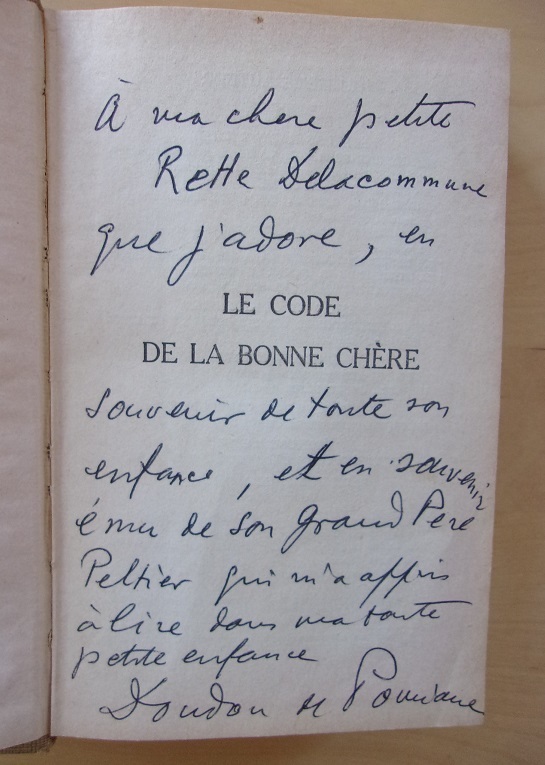 À ma chere petite
Rette Delacommune
que j'adore, en
LE CODE
DE LA BONNE CHÈRE
souvenir de toute son
enfance, et en souvenir
ému de son Grand Pere
Peltier qui m'a appris
à lire dans ma toute
petite enfance
Doudou de Pomiane